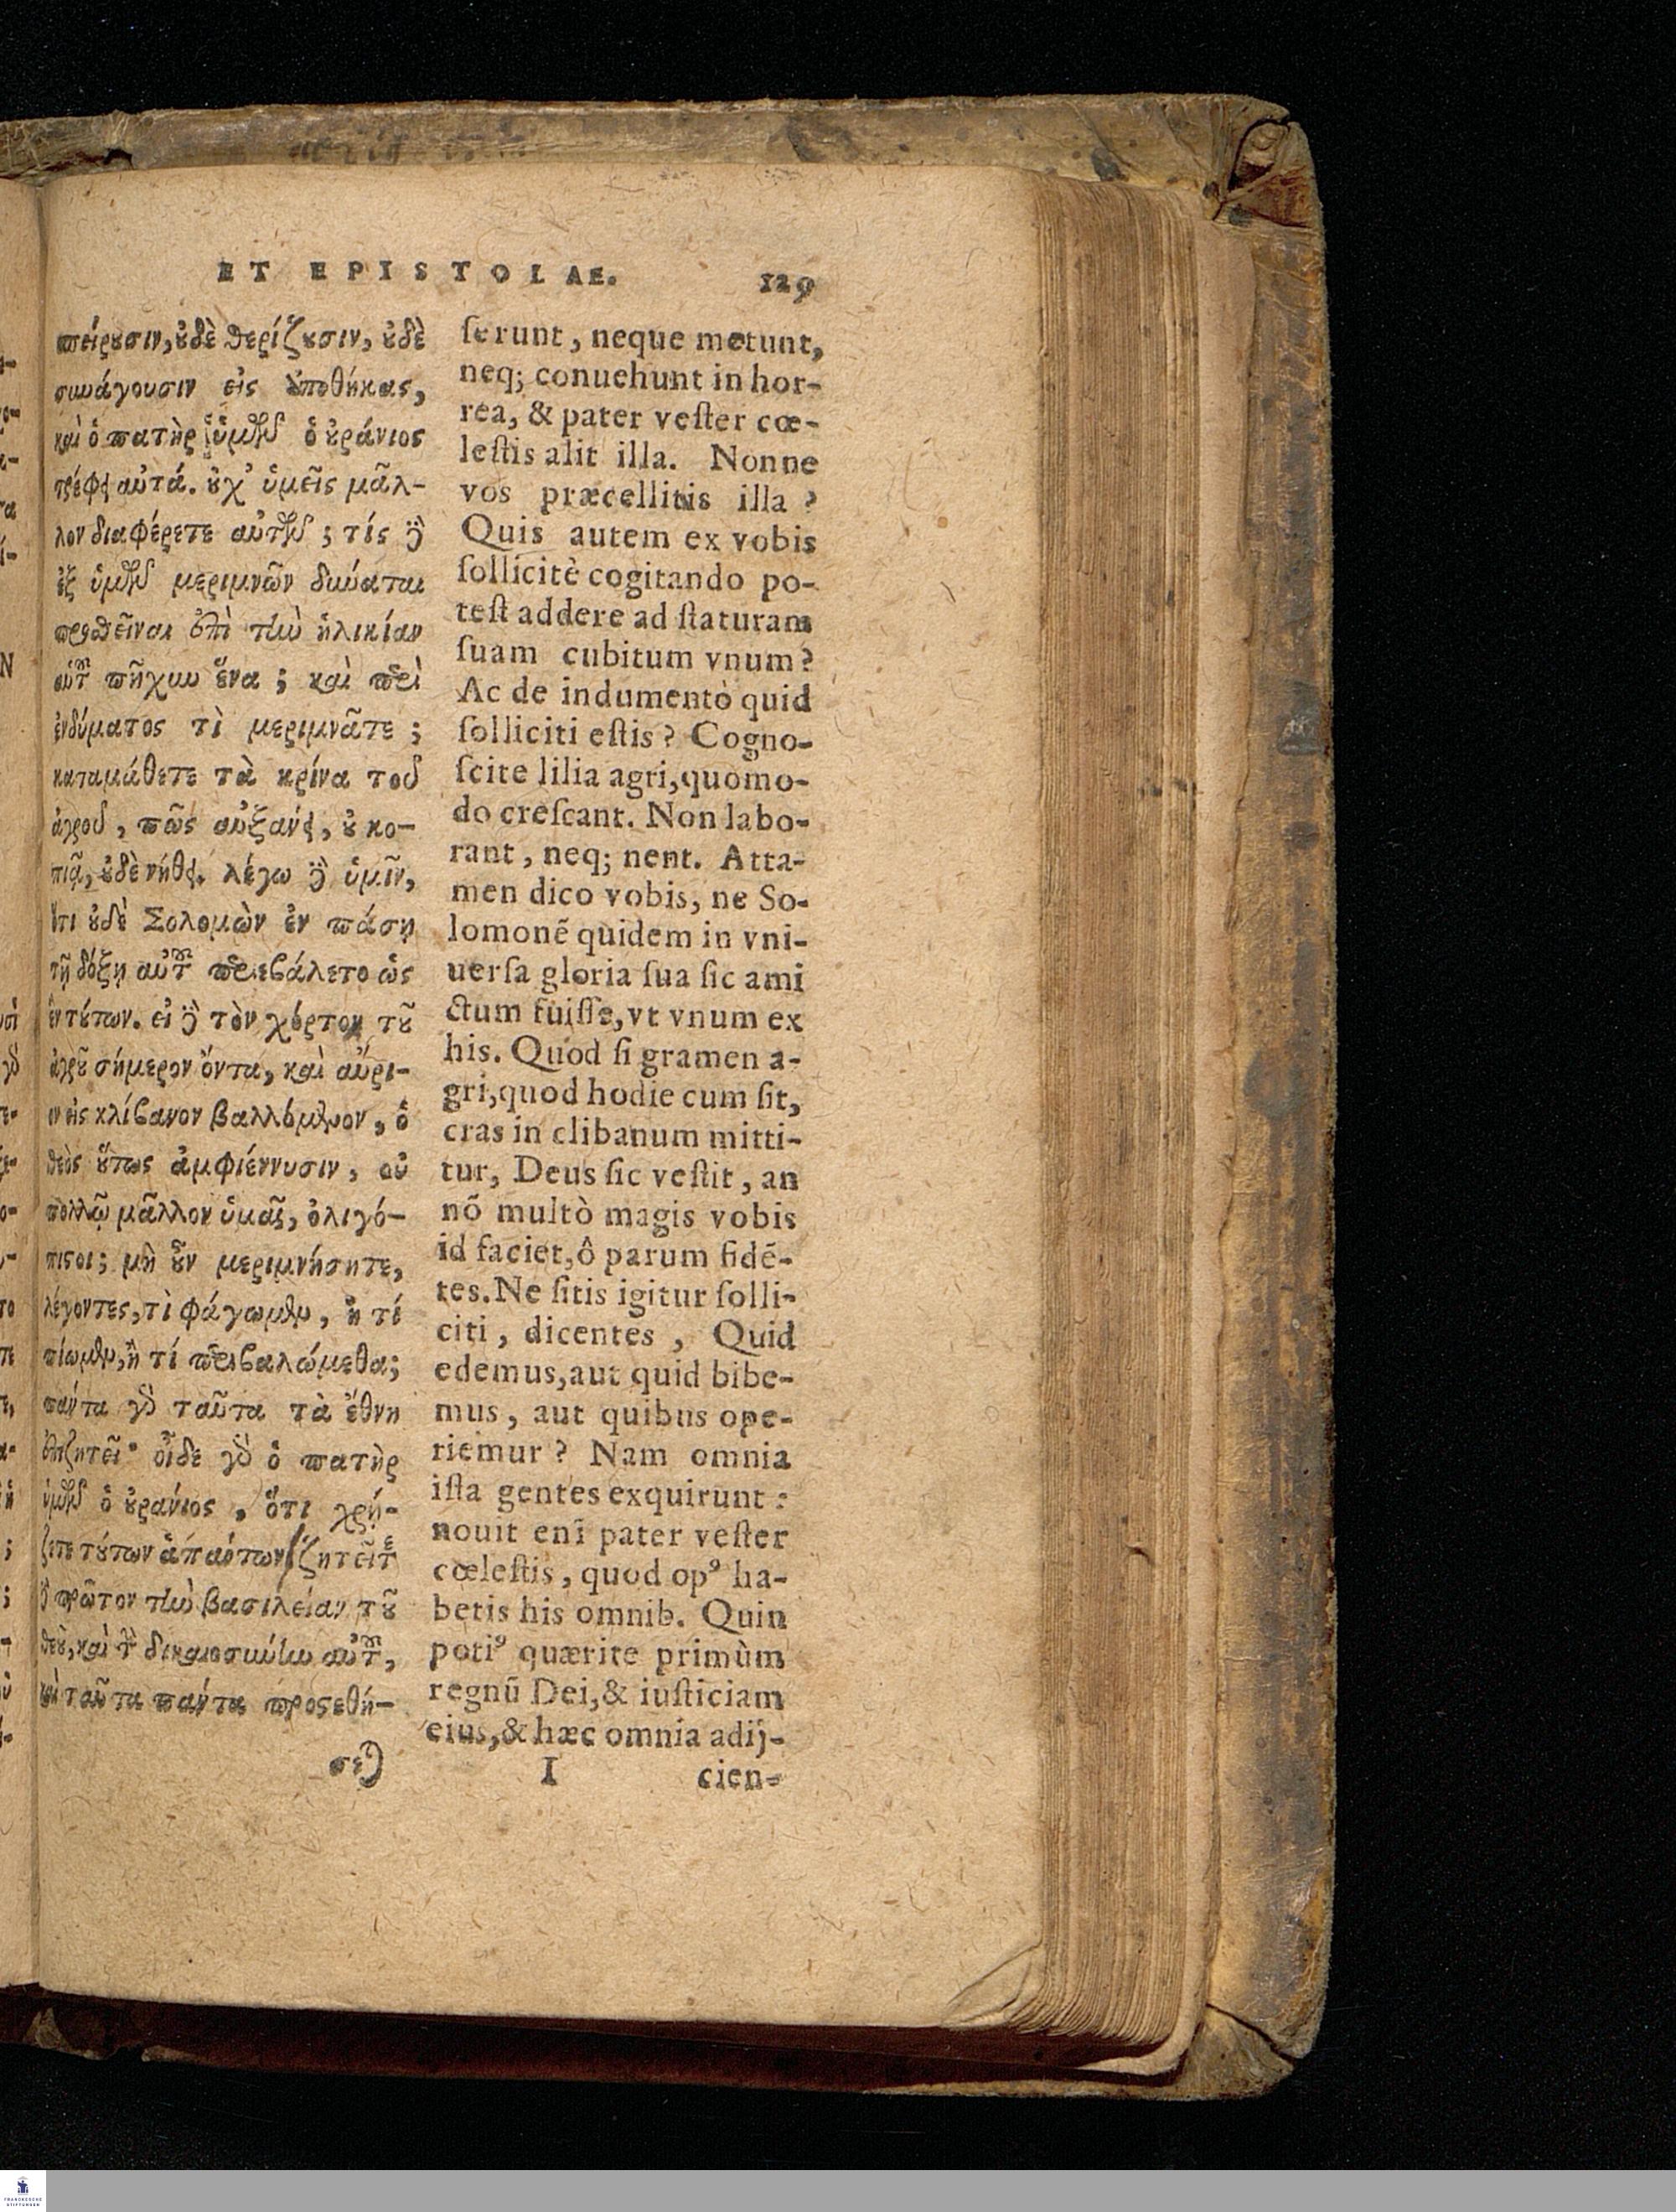 ET EPISTOLAE. 129
πείρȣσιν, ȣ̓δὲ θερίζȣσιν, ȣ̓δὲ
συνάγουσιν εἰς ἀποθήκας,
καὶ ὁ πατὴρ ὑμῶν ὁ ȣ̓ράνιος
τρέφει αὐτά. ȣ̓χ᾽ ὑμεῖς μᾶλ-
λον διαφέρετε αὐτῶν; τίς δὲ
ἐξ ὑμῶν μεριμνῶν δύναται
προσθεῖναι ἐπὶ τὴν ἡλικίαν
αὐτοῦ πῆχυν ἕνα; καὶ περὶ
ἐνδύματος τὶ μεριμνᾶτε;
καταμάθετε τὰ κρίνα τοῦ
ἀγροῦ, πῶς αὐξάνει, ȣ̓ κο-
πιᾷ, ȣ̓δὲ νήθει. λέγω δὲ ὑμῖν,
ὅτι ȣ̓δὲ Σολομὼν ἐν πάσῃ
τῇ δόξῃ αὐτοῦ περιεβάλετο ὡς
ἓν τȣ́των. εἰ δὲ τὸν χόρτον τȣ͂
ἀγρȣ͂ σήμερον ὄντα, καὶ αὔρι-
ον εἰς κλίβανον βαλλόμενον, ὁ
θεὸς ȣ̔́τως ἀμφιέννυσιν, οὐ
πολλῷ μᾶλλον ὑμᾶς, ὀλιγό-
πιστοι; μὴ ȣ̓͂ν μεριμνήσητε,
λέγοντες, τὶ φάγωμεν, ἢ τί
πίωμεν, ἢ τί περιβαλώμεθα;
πάντα γὰρ ταῦτα τὰ ἔθνη
ἐπιζητεῖ· οἶδε γὰρ ὁ πατὴρ
ὑμῶν ὁ ȣ̓ράνιος, ὅτι χρῄ-
ζετε τȣ́των ἁπάντων ζητεῖτε
δὲ πρῶτον τὴν βασιλείαν τȣ͂
θεȣ͂, καὶ τὴν δικαιοσύνην αὐτοῦ,
καὶ ταῦτα πάντα προςεθή-
σεται
ſerunt, neque metunt,
neq; conuehunt in hor-
rea, & pater veſter cœ-
leſtis alit illa. Nonne
vos præcellitis illa?
Quis autem ex vobis
ſollicitè cogitando po-
teſt addere ad ſtaturam
ſuam cubitum vnum?
Ac de indumento quid
ſolliciti eſtis? Cogno-
ſcite lilia agri, quomo-
do creſcant. Non labo-
rant, neq; nent. Atta-
men dico vobis, ne So-
lomonẽ quidem in vni-
uerſa gloria ſua ſic ami
ctum fuiſſe, vt vnum ex
his. Quod ſi gramen a-
gri, quod hodie cum ſit,
cras in clibanum mitti-
tur, Deus ſic veſtit, an
nõ multò magis vobis
id faciet, ô parum fidẽ-
tes. Ne ſitis igitur ſolli-
citi, dicentes, Quid
edemus, aut quid bibe-
mus, aut quibus ope-
riemur? Nam omnia
iſta gentes exquirunt:
nouit enĩ pater veſter
cœleſtis, quod opꝰ ha-
betis his omnib. Quin
potiꝰ quærite primùm
regnũ Dei, & iuſticiam
eius, & hæc omnia adij-
I cien-
FRANCKESCHE
STIFTUNGEN